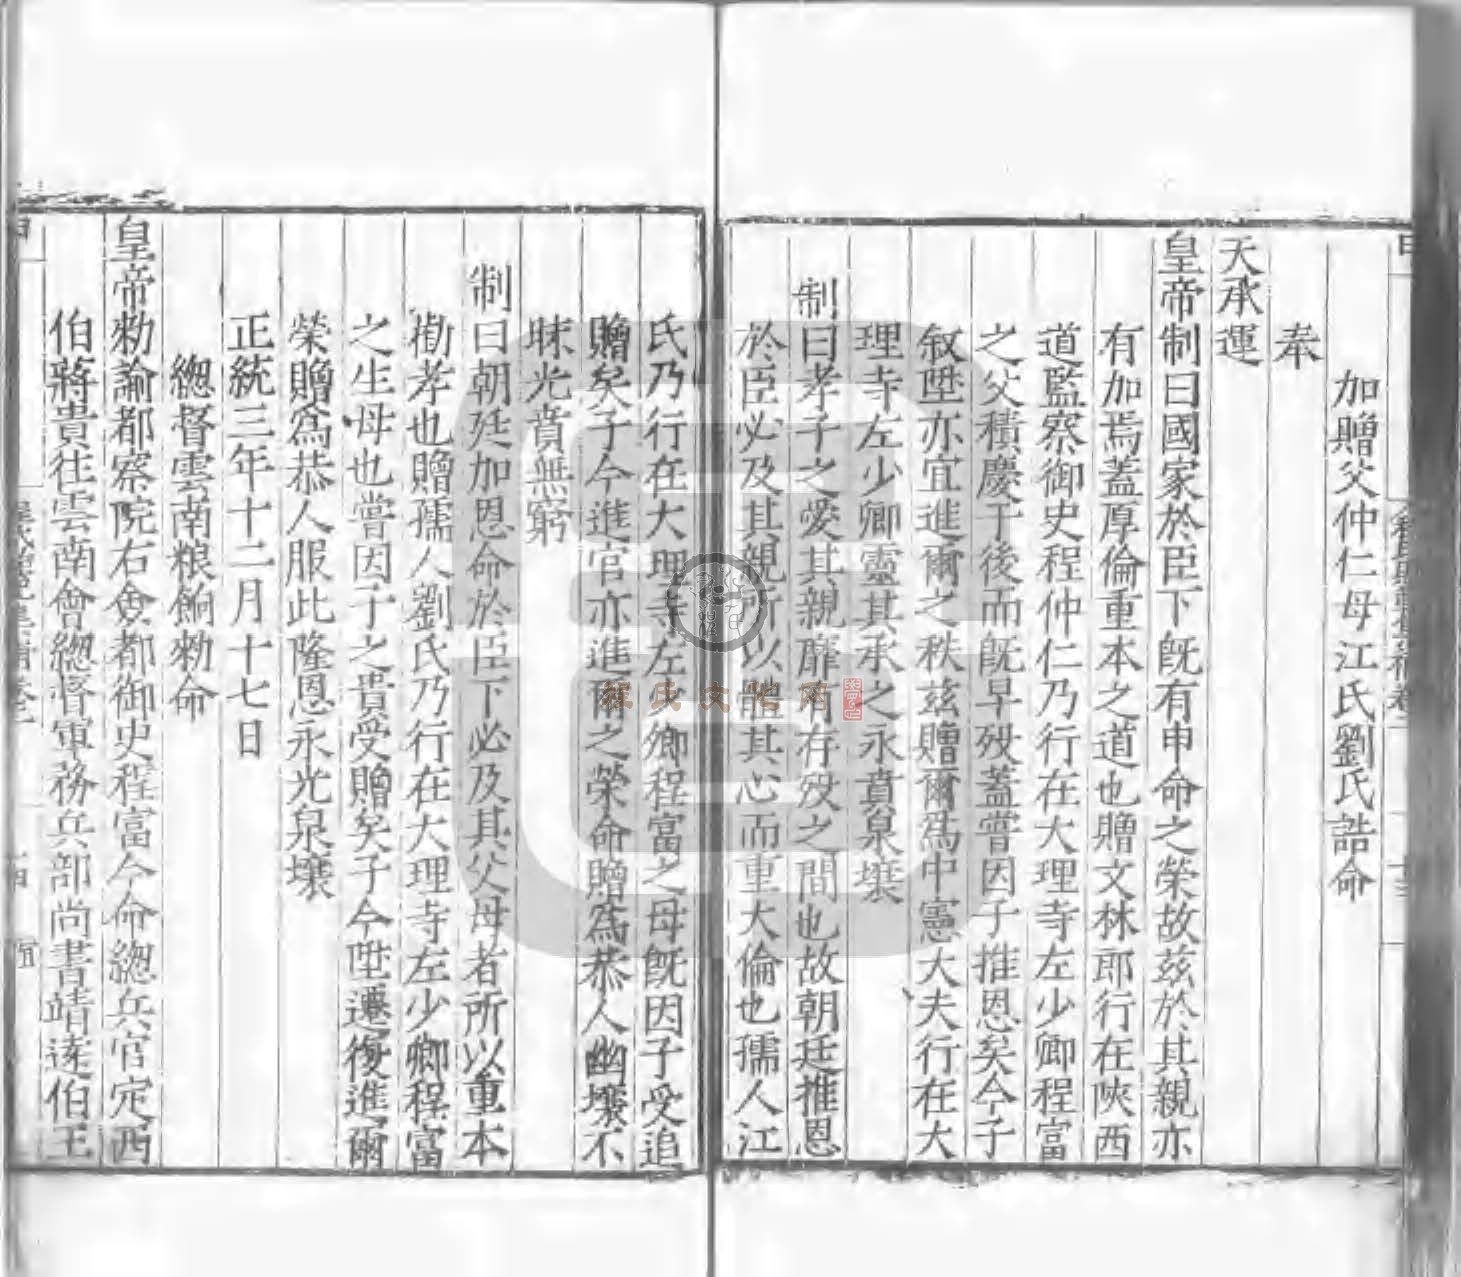 加贈父仲仁母江氏劉氏誥命
奉
天承運
皇帝制曰國家於臣下既有申命之榮故茲於其親亦
有加焉蓋厚倫重本之道也贈文林郎行在陝西
道監察御史程仲仁乃行在大理寺左少卿程富
之父積慶于後而既早歿蓋嘗因子推恩矣今子
敘陞亦宜進爾之秩茲贈爾爲中憲大夫行在大
理寺左少卿靈其承之永賁泉壤
制曰孝子之愛其親靡有存歿之間也故朝廷推恩
於臣必及其親所以體其心而重大倫也孺人江
氏乃行在大理寺左少卿程富之母既因子受追
贈矣子今進官亦進爾之榮命贈爲恭人幽壤不
昧光賁無窮
制曰朝廷加恩命於臣下必及其父母者所以重本
勸孝也贈孺人劉氏乃行在大理寺左少卿程富
之生母也嘗因子之貴受贈矣子今陞遷復進爾
榮贈爲恭人服此隆恩永光泉壤
正統三年十二月十七日
總督雲南粮餉勑命
皇帝勑諭都察院右僉都御史程富今命總兵官定西
伯蔣貴往雲南會總督軍務兵部尚書靖遠伯王